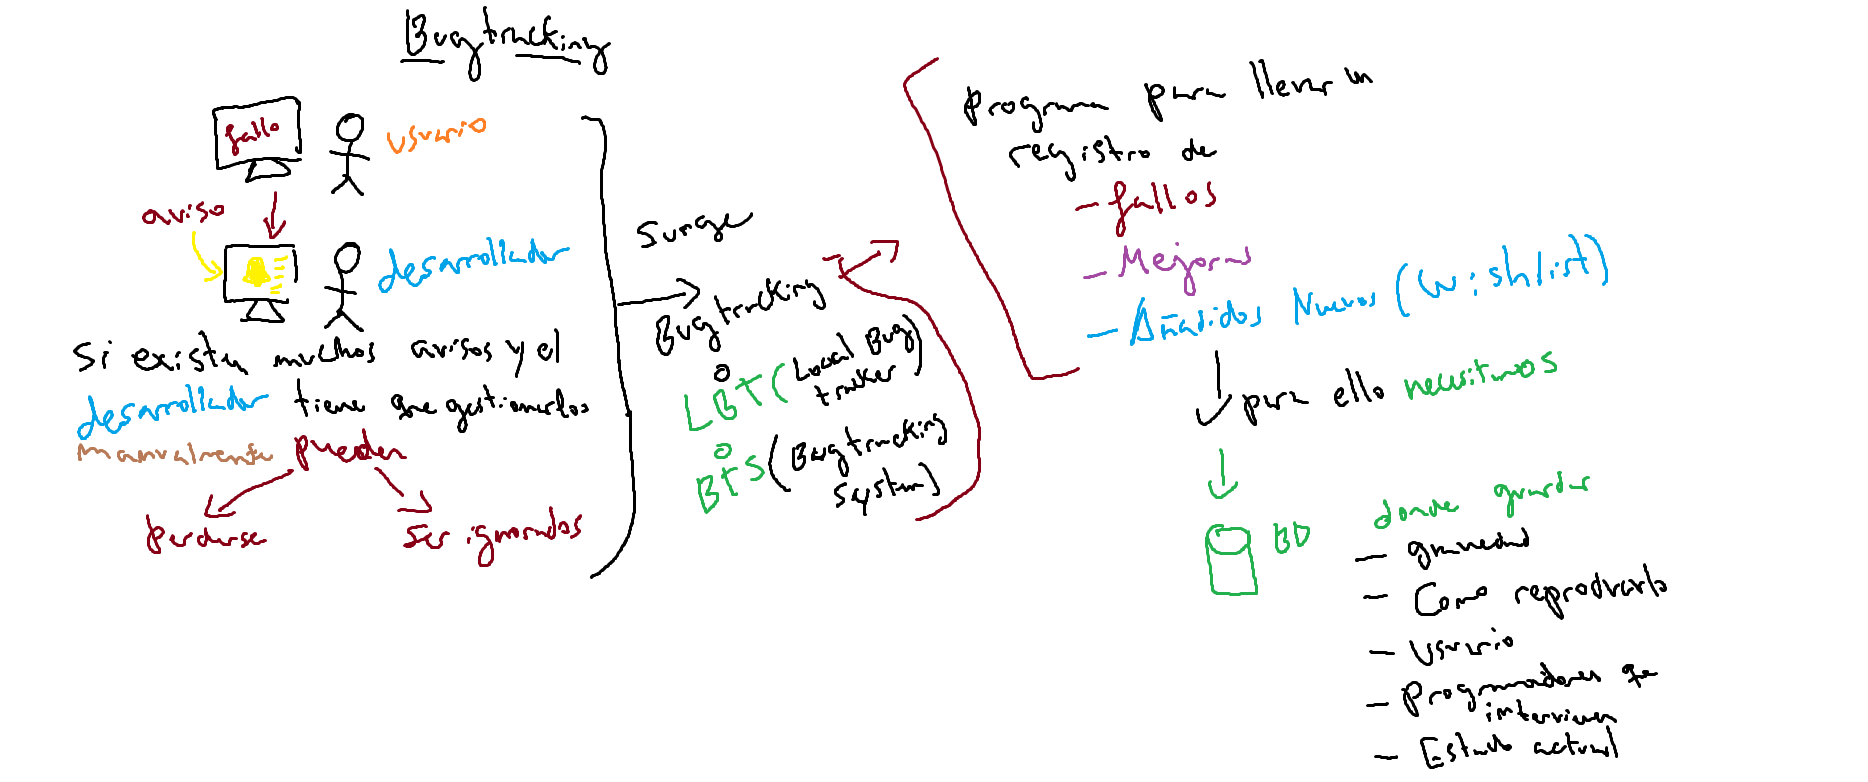 Bugtracking
fallo
usuario
aviso
desarrollador
Si existen muchos avisos y el
desarrollador tiene que gestionarlos
manualmente pueden
Perderse
Ser ignorados
Surge
Bugtracking
o
LBT (Local Bug
traker)
o
BTS (Bugtracking
system)
Programa para llevar un
registro de
- fallos
- Mejoras
- Añadidos Nuevos (wishlist)
para ello necesitamos
BD
donde guardar
- gravedad
- Como reproducirlo
- usuario
- Programadores que
intervienen
- Estado actual